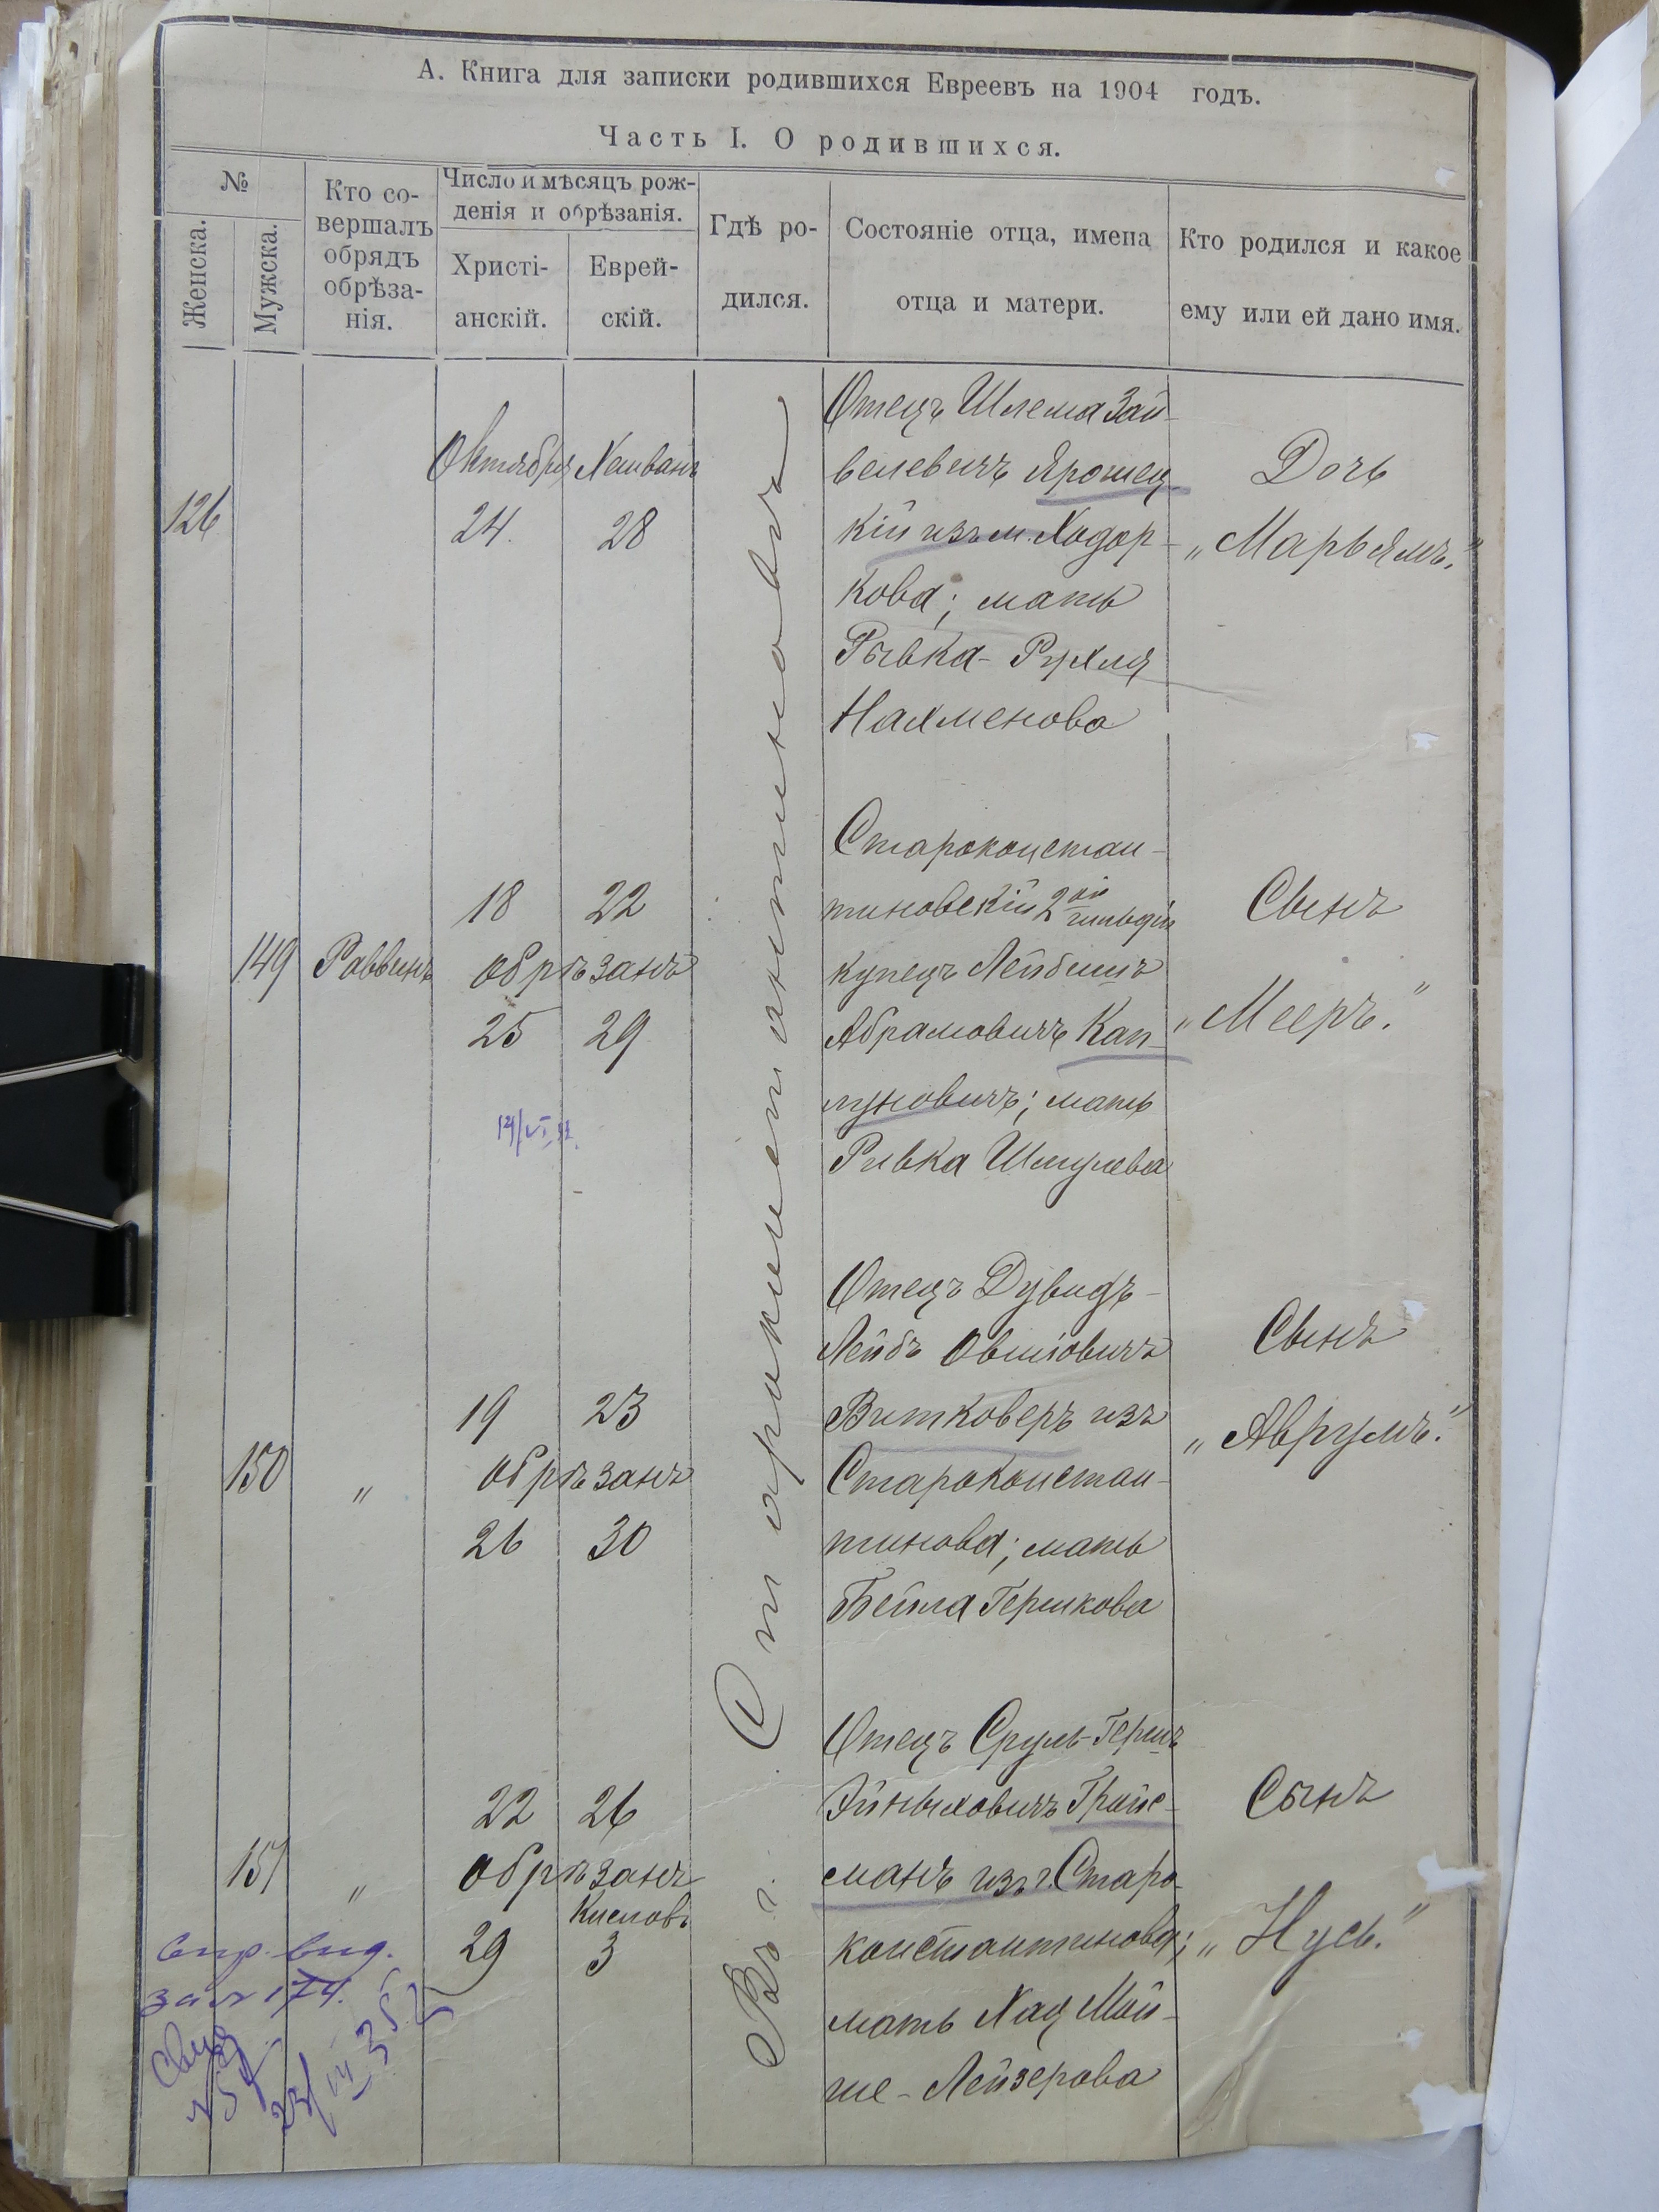 А. Книга для записки родившихся Евреевъ на 1904 годъ.
Часть I. О родившихся.
№
Женска.
Мужска.
Кто со-
вершалъ
обрядъ
обрѣза-
нія.
Число и мѣсяцъ рож-
денія и обрѣзанія.
Христі-
анскій.
Еврей-
скій.
Гдѣ ро-
дился.
Состояніе отца, имена
отца и матери.
Кто родился и какое
ему или ей дано имя.
Въ г. Староконстантиновѣ
126
Октября Хешванъ
24. 28
Отецъ Шлема Зай-
велевичъ Ярошец-
кій изъ м. Ходор-
кова; мать
Рывка-Рухля
Нахменова
Дочь
„Марьямъ."
149
Раввинъ
18 22
обрѣзанъ
25 29
Староконстан-
тиновскій 2ой гильдіи
купецъ Лейбишъ
Абрамовичъ Кап-
луновичъ; мать
Ривка Шмулева
Сынъ
„Мееръ."
150
„
19 23
обрѣзанъ
26 30
Отецъ Дувидъ-
Лейбъ Овшіовичъ
Витковеръ изъ
Староконстан-
тинова; мать
Бейла Гершкова
Сынъ
„Аврумъ."
151
„
22 26
обрѣзанъ
Кислевъ
29 3
Отецъ Сруль-Гершъ
Эйныховичъ Гройс-
манъ изъ г. Старо-
константинова;
мать Хая Мой-
ше-Лейзерова
Сынъ
„Нусь."